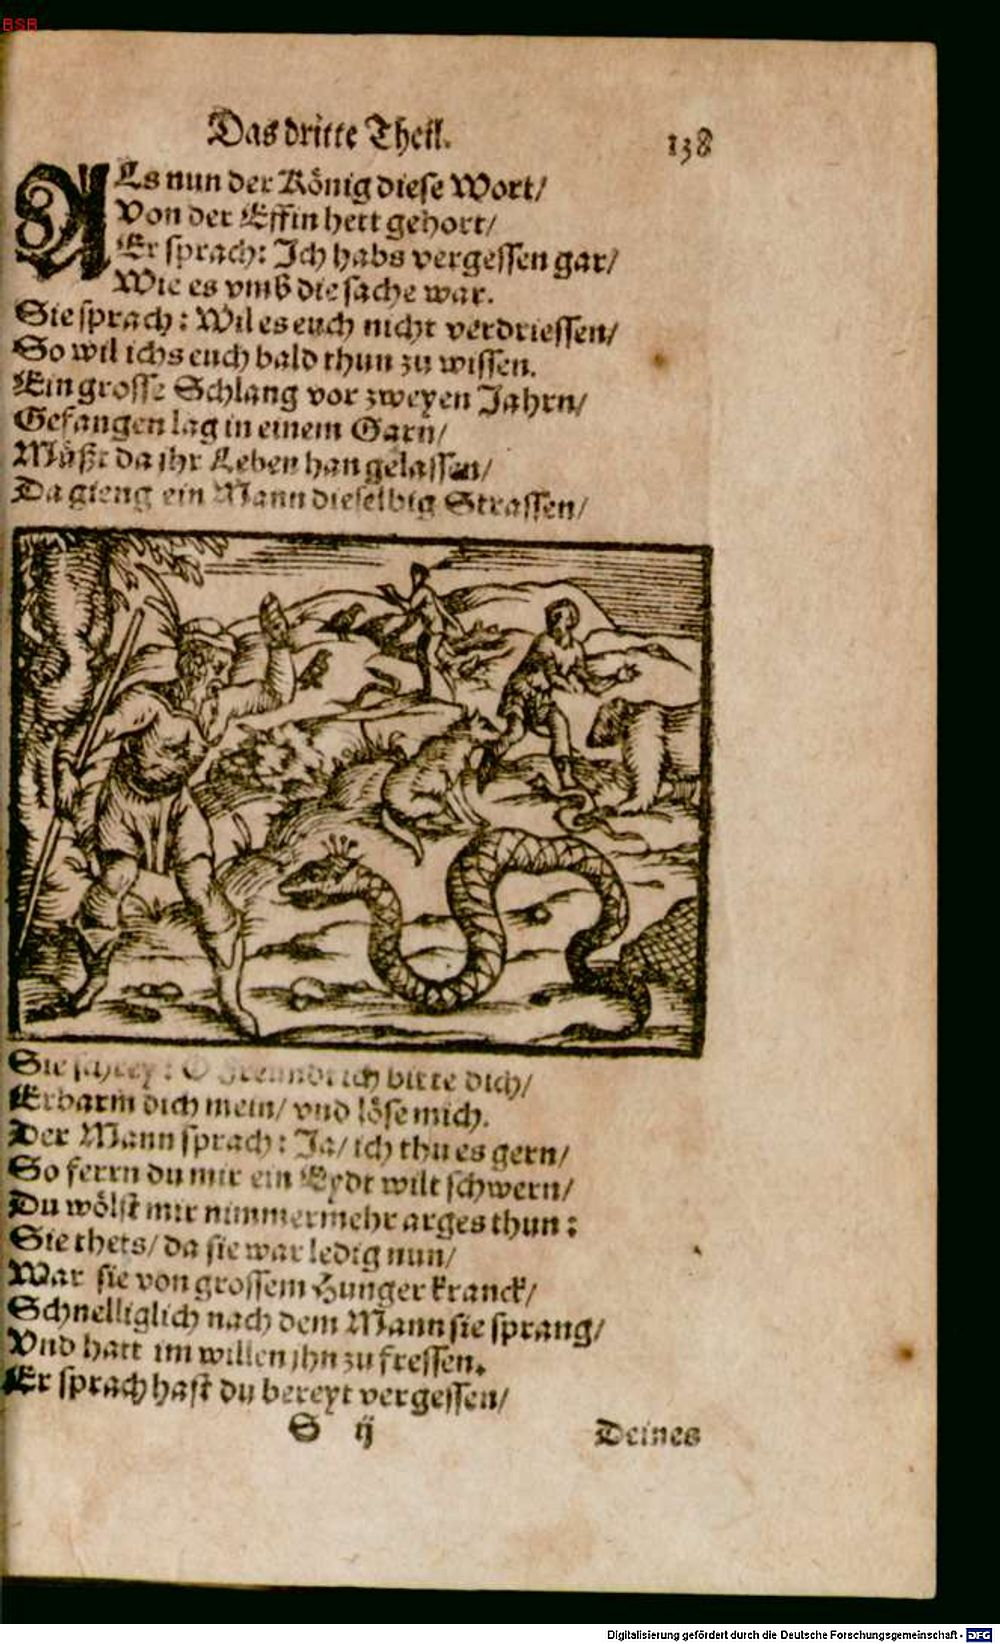 BSB
Das dritte Theil. 138
ALs nun der König diese Wort/
Von der Effin hett gehort/
Er sprach: Ich habs vergessen gar/
Wie es vmb die sache war.
Sie sprach: Wil es euch nicht verdriessen/
So wil ichs euch bald thun zu wissen.
Ein grosse Schlang vor zweyen Jahrn/
Gefangen lag in einem Garn/
Müßt da jhr Leben han gelassen/
Da gieng ein Mann dieselbig Strassen/
Sie schrey: O Freundt ich bitte dich/
Erbarm dich mein/ vnd löse mich.
Der Mann sprach: Ja/ ich thu es gern/
So ferrn du mir ein Eydt wilt schwern/
Du wölst mir nimmermehr arges thun:
Sie thets/ da sie war ledig nun/
War sie von grossem Hunger kranck/
Schnelliglich nach dem Mann sie sprang/
Vnd hatt im willen jhn zu fressen.
Er sprach hast du bereyt vergessen/
S ij Deines
Digitalisierung gefördert durch die Deutsche Forschungsgemeinschaft - DFG